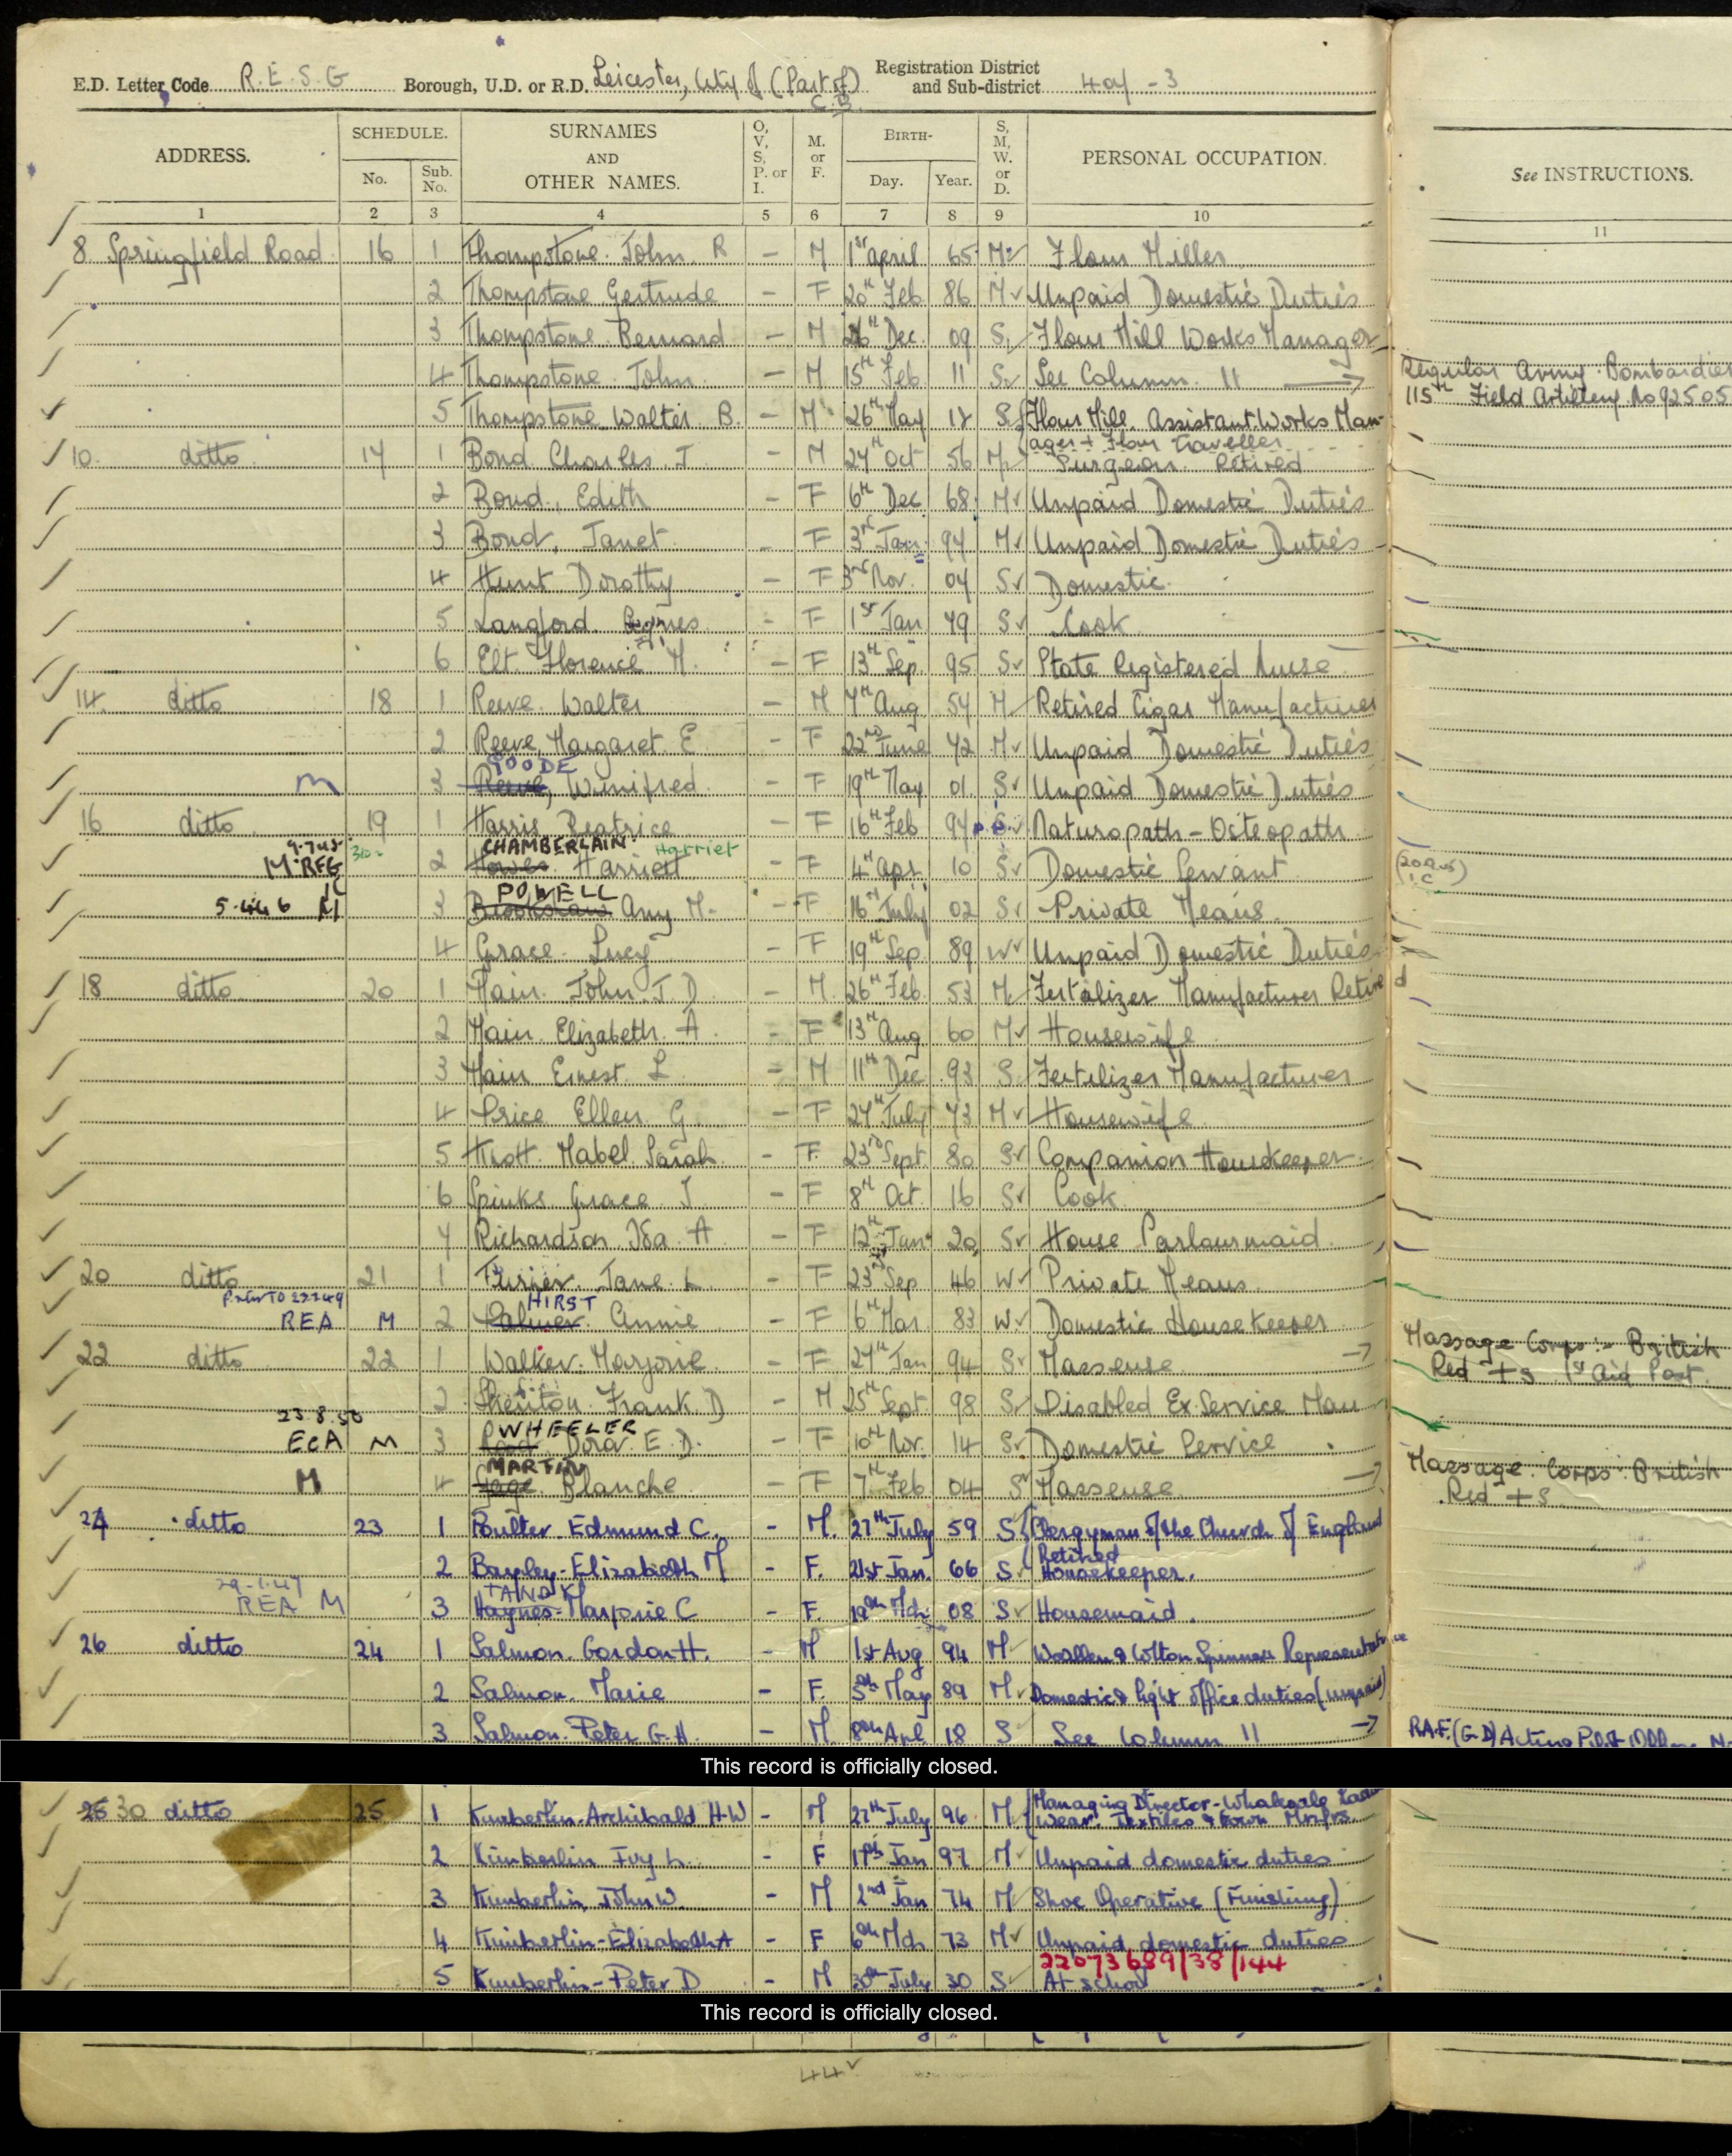 E.D. Letter Code R.E.S.G Borough, U.D. or R.D. Leicester, City of (Part of) C.B. Registration District and Sub-district 407 - 3
ADDRESS. SCHEDULE. No. Sub. No. SURNAMES AND OTHER NAMES. O, V, S, P. or I. M. or F. BIRTH- Day. Year. S, M, W. or D. PERSONAL OCCUPATION. See INSTRUCTIONS.
1 2 3 4 5 6 7 8 9 10 11
8 Springfield Road 16 1 Thompstone John R - M 1st April 65 M Flour Miller
2 Thompstone Gertrude - F 20th Feb 86 M Unpaid Domestic Duties
3 Thompstone Bernard - M Dec 09 S Flour Mill Works Manager
4 Thompstone John - M 15th Feb 11 S See Column 11 Regular Army Bombardier
115th Field Artillery No 92505
5 Thompstone Walter B. - M 26th May 17 S Flour Mill Assistant Works Man-
ager + Flour Traveller
10 ditto 17 1 Bond Charles J - M 27th Oct 56 M Surgeon Retired
2 Bond, Edith - F 6th Dec 68 M Unpaid Domestic Duties
3 Bond, Janet - F 3rd Jan 97 M Unpaid Domestic Duties
4 Hunt Dorothy - F 3rd Nov. 07 S Domestic
5 Langford Agnes - F 1st Jan 79 S Cook
6 Elt Florence M. - F 13th Sep 95 S State Registered Nurse
14 ditto 18 1 Reeve Walter - M 7th Aug 54 M Retired Cigar Manufacturer
2 Reeve Margaret E - F 22nd June 72 M Unpaid Domestic Duties
GOODE
M 3 Reeve, Winifred - F 19th May 01 S Unpaid Domestic Duties
16 ditto 19 1 Harris Beatrice - F 16th Feb 97 S Naturopath - Osteopath
CHAMBERLAIN Harriet
M RFG 2 Howes Harriett - F 4th Apr 10 S Domestic Servant
POWELL
5.4.46 M 3 Brookshaw Amy M- - F 16th July 02 S Private Means
4 Grace Lucy - F 19th Sep 89 W Unpaid Domestic Duties
18 ditto 20 1 Main John J. D - M 26th Feb 53 M Fertilizer Manufacturer Retired
2 Main Elizabeth A. - F 13th Aug 60 M Housewife
3 Main Ernest L - M 11th Dec 93 S Fertilizer Manufacturer
4 Price Ellen G - F 27th July 73 M Housewife
5 Knott Mabel Sarah - F 23rd Sept 80 S Companion Housekeeper
6 Spinks Grace J - F 8th Oct. 16 S Cook
7 Richardson Ida A - F 12th Jan 20 S House Parlourmaid
20 ditto 21 1 Turner Jane L - F 23rd Sep 46 W Private Means
HIRST
REA M 2 Palmer Annie - F 6th Mar 83 W Domestic Housekeeper
22 ditto 22 1 Walker Marjorie - F 27th Jan 94 S Masseuse Massage Corps :- British
Red + s 1st Aid Post
2 Shenton Frank D - M 25th Sept 98 S Disabled Ex Service Man
23.8.50 WHEELER
ECA M 3 Dora E. D. - F 10th Nov. 14 S Domestic Service
MARTIN
M 4 Gage Blanche - F 7th Feb 04 S Masseuse Massage Corps British
Red + s
24 ditto 23 1 Boulter Edmund C. - M. 27th July 59 S Clergyman of the Church of England
Retired
2 Baxley - Elizabeth M - F. 21st Jan. 66 S Housekeeper.
29-1-47 TANDY
REA M 3 Haynes - Marjorie C - F. 19th Mch 08 S Housemaid.
26 ditto 24 1 Salmon. Gordon H. - M 1st Aug 94 M Woollen & Cotton Spinners Representative
2 Salmon. Marie - F. 5th May 89 M Domestic & light office duties (unpaid)
3 Salmon. Peter G. H. - M. 8th Apl 18 S See Column 11 R.A.F. (G.D) Acting Pilot
This record is officially closed.
30 ditto 25 1 Kimberlin - Archibald H W - M 27th July 96 M Managing Director - Wholesale
Wear. Textiles & Gown Mnfrs.
2 Kimberlin Ivy L. - F Jan 97 M Unpaid domestic duties
3 Kimberlin John W. - M 2nd Jan 74 M Shoe Operative (Finishing)
4 Kimberlin - Elizabeth A - F 6th Mch 73 M Unpaid domestic duties
22073689/38/144
5 Kimberlin - Peter D - M 30th July 30 S At school
This record is officially closed.
44